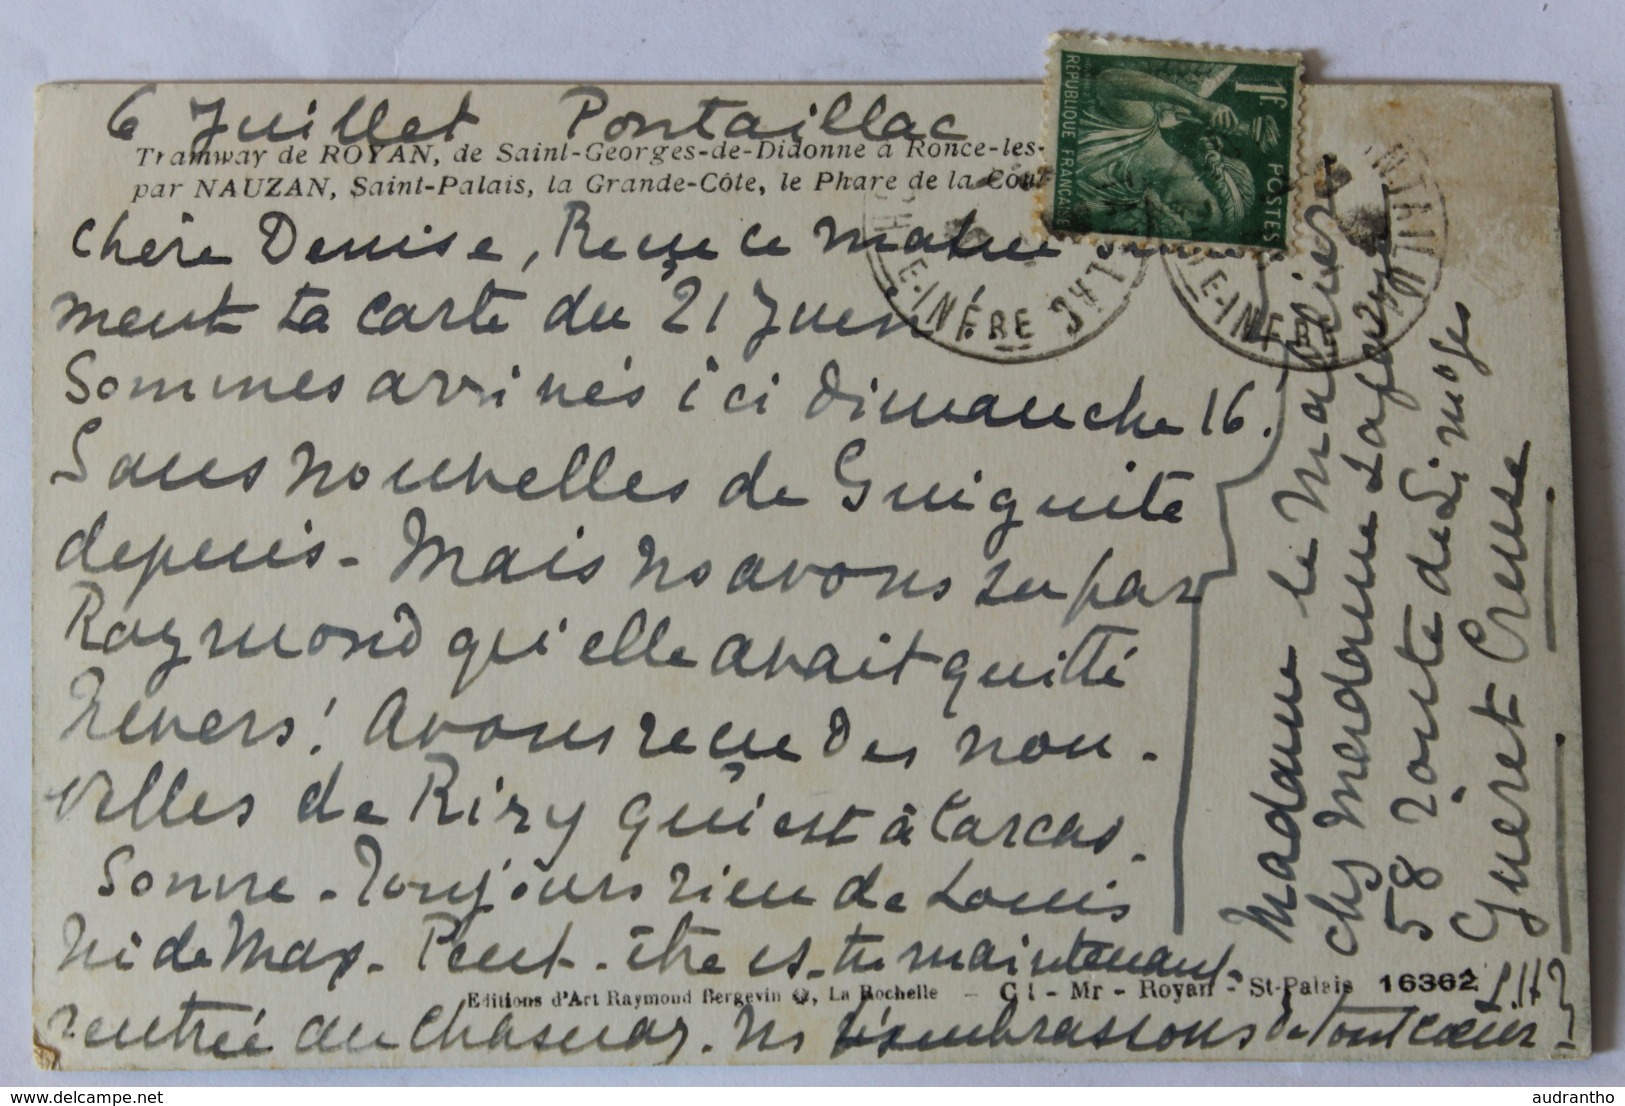 6 Juillet Pontaillac
Tramway de ROYAN, de Saint-Georges-de-Didonne à Ronce-les-
par NAUZAN, Saint-Palais, la Grande-Côte, le Phare de la Cou
Chère Denise, Reçu ce matin
ment ta carte du 21 Juin!
Sommes arrivés ici Dimanche 16.
Sans nouvelles de Guiguite
depuis - Mais ns avons su par
Raymond qu'elle avait quitté
Nevers! Avons reçu des nou-
velles de Rizy qui est à Carcas-
sonne - Toujours rien de Louis
Ni de Max. Peut-être es-tu maintenant
Editions d'Art Raymond Bergevin, La Rochelle - Cl - Mr - Royan - St-Palais 16362
rentrée au Chasnay. Ns t'embrassons de tout cœur
1F POSTES
REPUBLIQUE FRANÇAISE
INFRE
Madame le
chs Madame Lafarge
58 route de Limoges
Gueret Creuse
audrantho